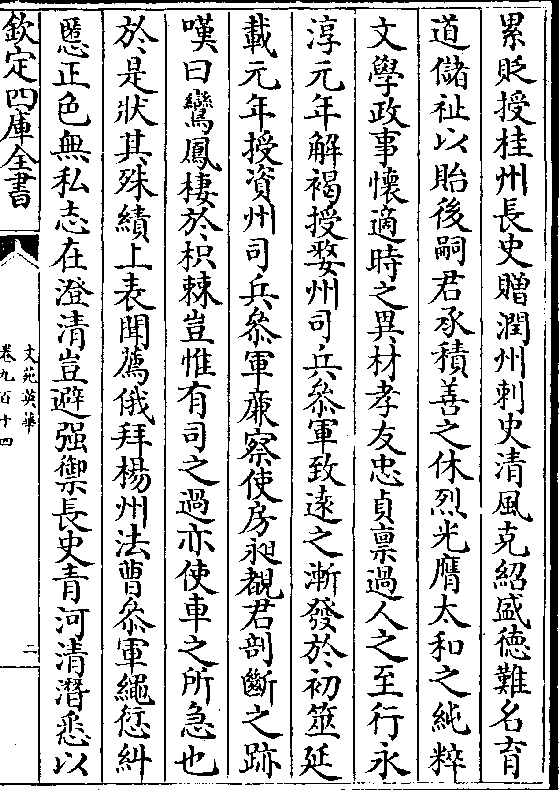 累貶授桂州長史贈潤州刺史清風克紹盛德難名育
道儲祉以貽後嗣君承積善之休烈光膺太和之純粹
文學政事懷適時之異材孝友忠貞禀過人之至行永
淳元年解褐授婺州司兵叅軍致遠之漸發於初筮延
載元年授資州司兵叅軍廉察使房昶覩君剖斷之跡
嘆曰鸞鳳棲於枳棘豈惟有司之過亦使車之所急也
於是狀其殊績上表聞薦俄拜楊州法曹叅軍繩愆糾
慝正色無私志在澄清豈避强禦長史青河清潛悉以
欽定四庫全書
文苑英華
卷九百十四
二